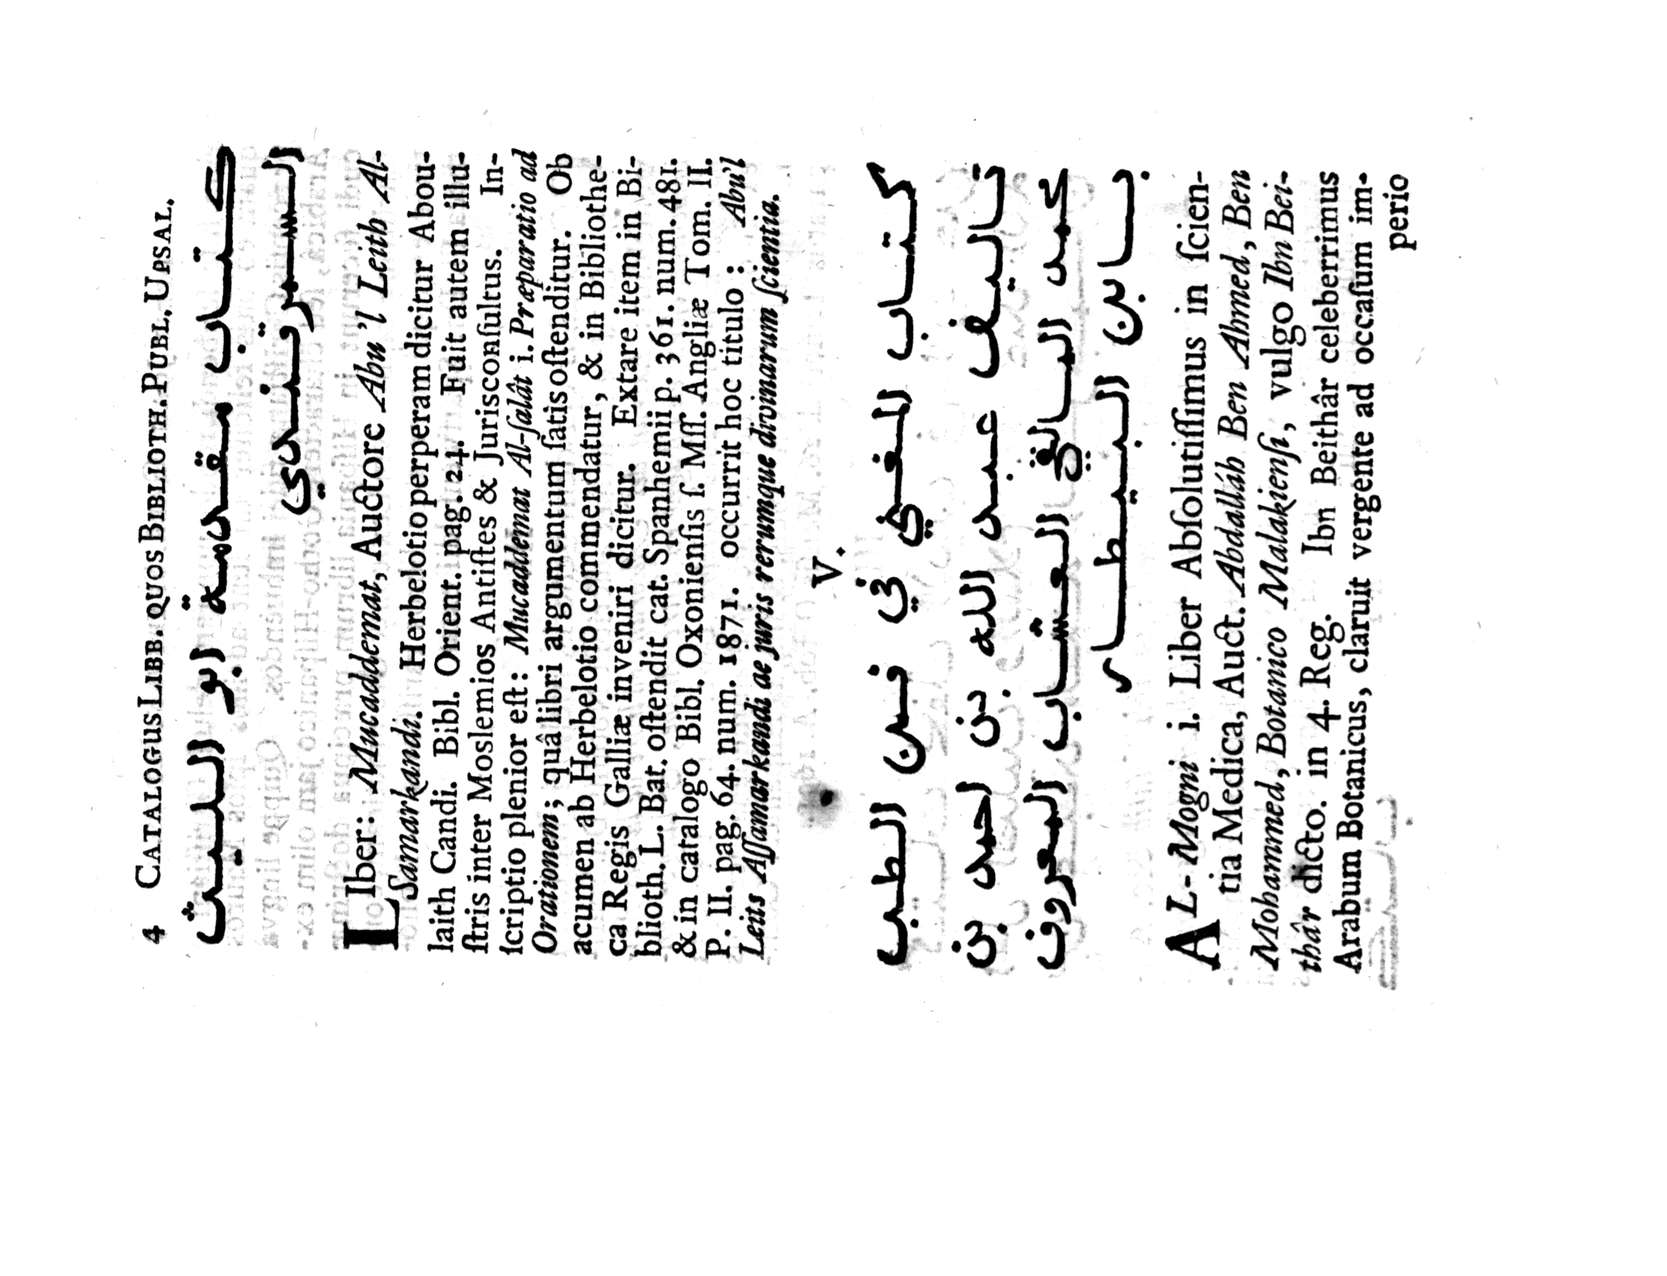 4 CATALOGUS LIBB. QUOS BIBLIOTH. PUBL. UPSAL.
كتاب مقدمة ابو الليث
السمرقندي
LIber: Mucaddemat, Auctore Abu 'l Leith Al-
Samarkandi. Herbelotio perperam dicitur Abou-
laith Candi. Bibl. Orient. pag. 24. Fuit autem illu-
ſtris inter Moslemios Antiſtes & Jurisconſultus. In-
ſcriptio plenior eſt: Mucaddemat Al-ſalât i. Præparatio ad
Orationem; quâ libri argumentum ſatis oſtenditur. Ob
acumen ab Herbelotio commendatur, & in Bibliothe-
ca Regis Galliæ inveniri dicitur. Extare item in Bi-
blioth. L. Bat. oſtendit cat. Spanhemii p. 361. num. 481.
& in catalogo Bibl. Oxonienſis ſ. Mſſ. Angliæ Tom. II.
P. II. pag. 64. num. 1871. occurrit hoc titulo: Abu'l
Leits Aſſamarkandi ae juris rerumque divinarum ſcientia.
V.
كتاب المغني في فن الطب
تاليف عبد الله بن احمد بن
محمد المالقي العشاب المعروف
بابن البيطار
AL-Mogni i. Liber Abſolutiſſimus in ſcien-
tia Medica, Auct. Abdalláh Ben Ahmed, Ben
Mohammed, Botanico Malakienſi, vulgo Ibn Bei-
thâr dicto. in 4. Reg. Ibn Beithâr celeberrimus
Arabum Botanicus, claruit vergente ad occaſum im-
perio